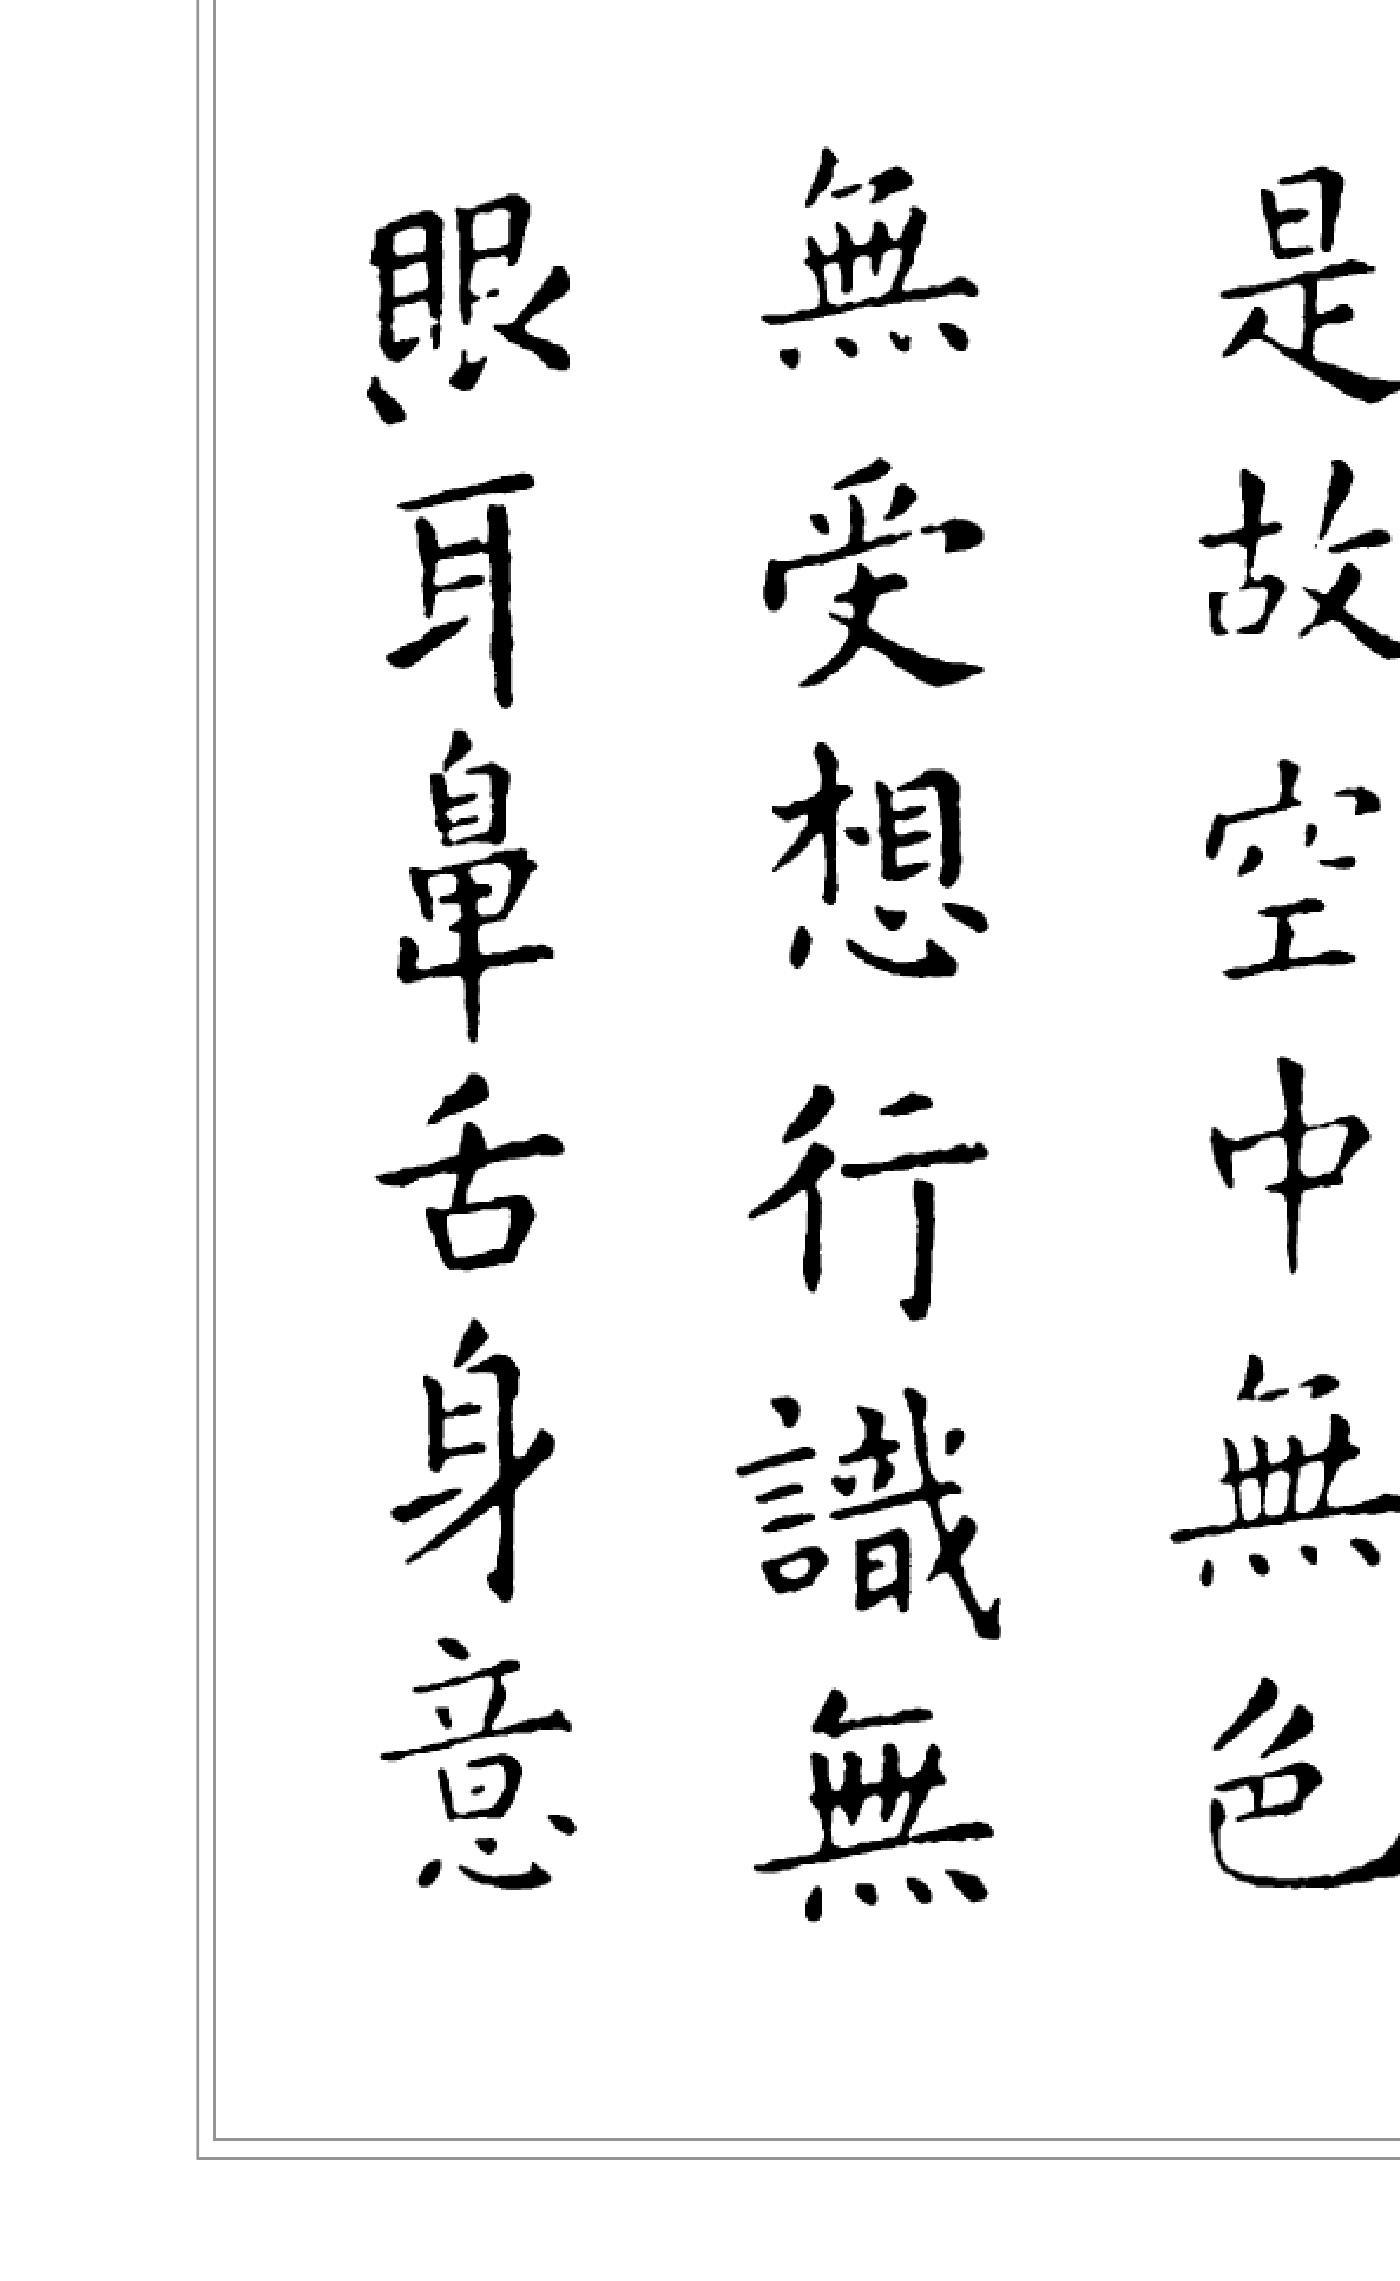 是故空中無色
無受想行識無
眼耳鼻舌身意